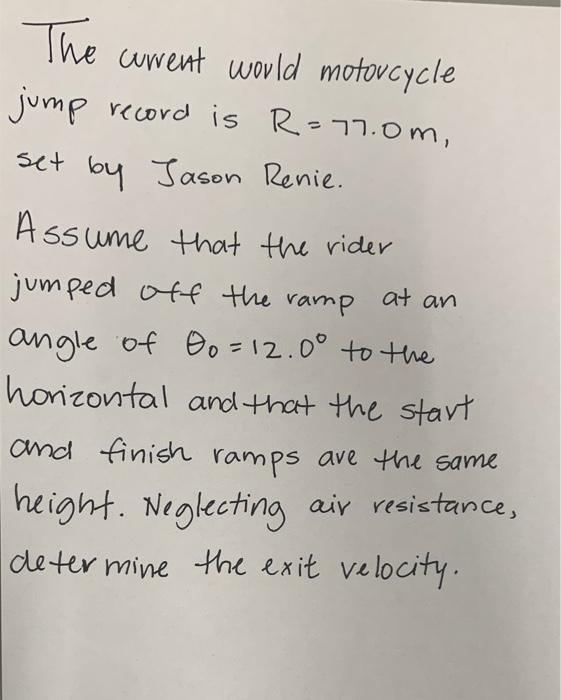 The current world motorcycle
jump record is R = 77.0m,
set by Jason Renie.
Assume that the rider
jumped off the ramp at an
angle of θ₀ = 12.0° to the
horizontal and that the start
and finish ramps are the same
height. Neglecting air resistance,
determine the exit velocity.